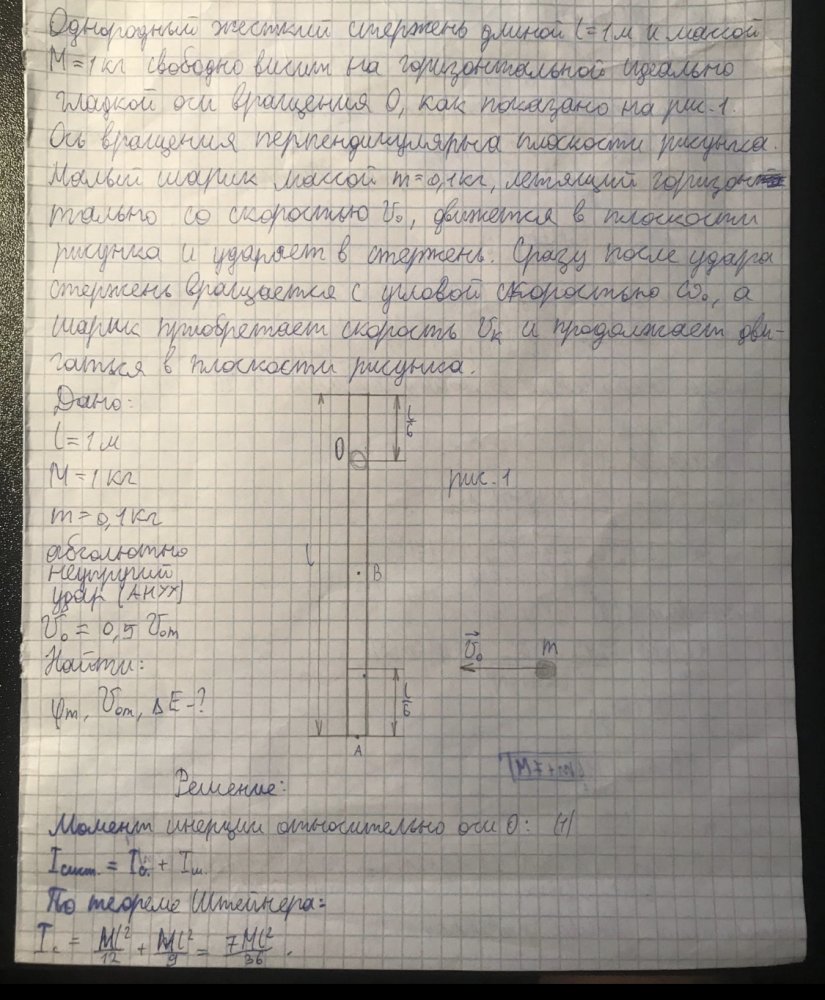 Однородный жесткий стержень длиной l=1м и массой
M=1кг свободно висит на горизонтальной идеально
гладкой оси вращения O, как показано на рис.1.
Ось вращения перпендикулярна плоскости рисунка.
Малый шарик массой m=0,1кг, летящий горизон
тально со скоростью V₀, движется в плоскости
рисунка и ударяет в стержень. Сразу после удара
стержень вращается с угловой скоростью ω₀, а
шарик приобретает скорость Vк и продолжает дви-
гаться в плоскости рисунка.
Дано:
l=1м
M=1кг
m=0,1кг
абсолютно
неупругий
удар (АНУУ)
V₀ = 0,5 Vom
Найти:
φm, Vom, ΔE-?
l/6
O
рис.1
l
B
V₀
m
l/6
A
Решение:
Момент инерции относительно оси O: (1)
Iсист. = Iс. + Iш.
По теореме Штейнера:
Iс = Ml²/12 + Ml²/9 = 7Ml²/36.